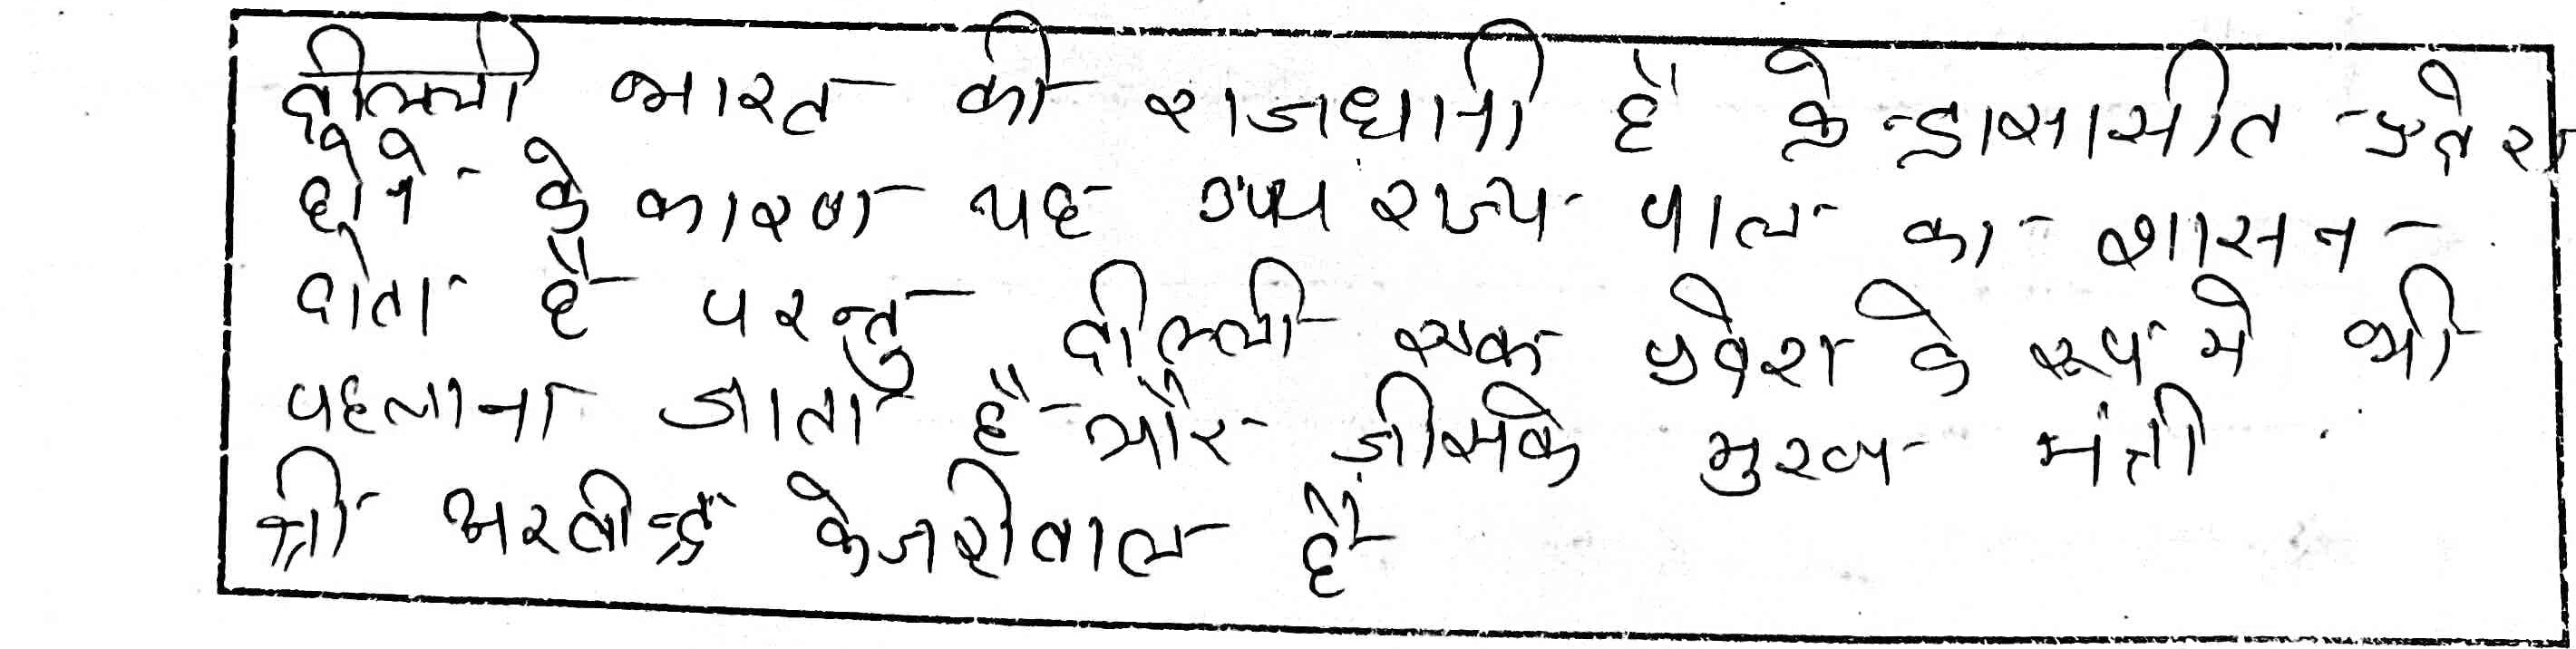 दील्ली भारत की राजधानी है केन्द्रासासीत प्रदेश
होने के कारण यह उप राज्य पाल का शासन
होता है परन्तु दील्ली एक प्रदेश के रूप मे भी
पहचाना जाता है और जीसके मुख्य मंत्री
श्री अरवीन्द्र केजरीवाल है